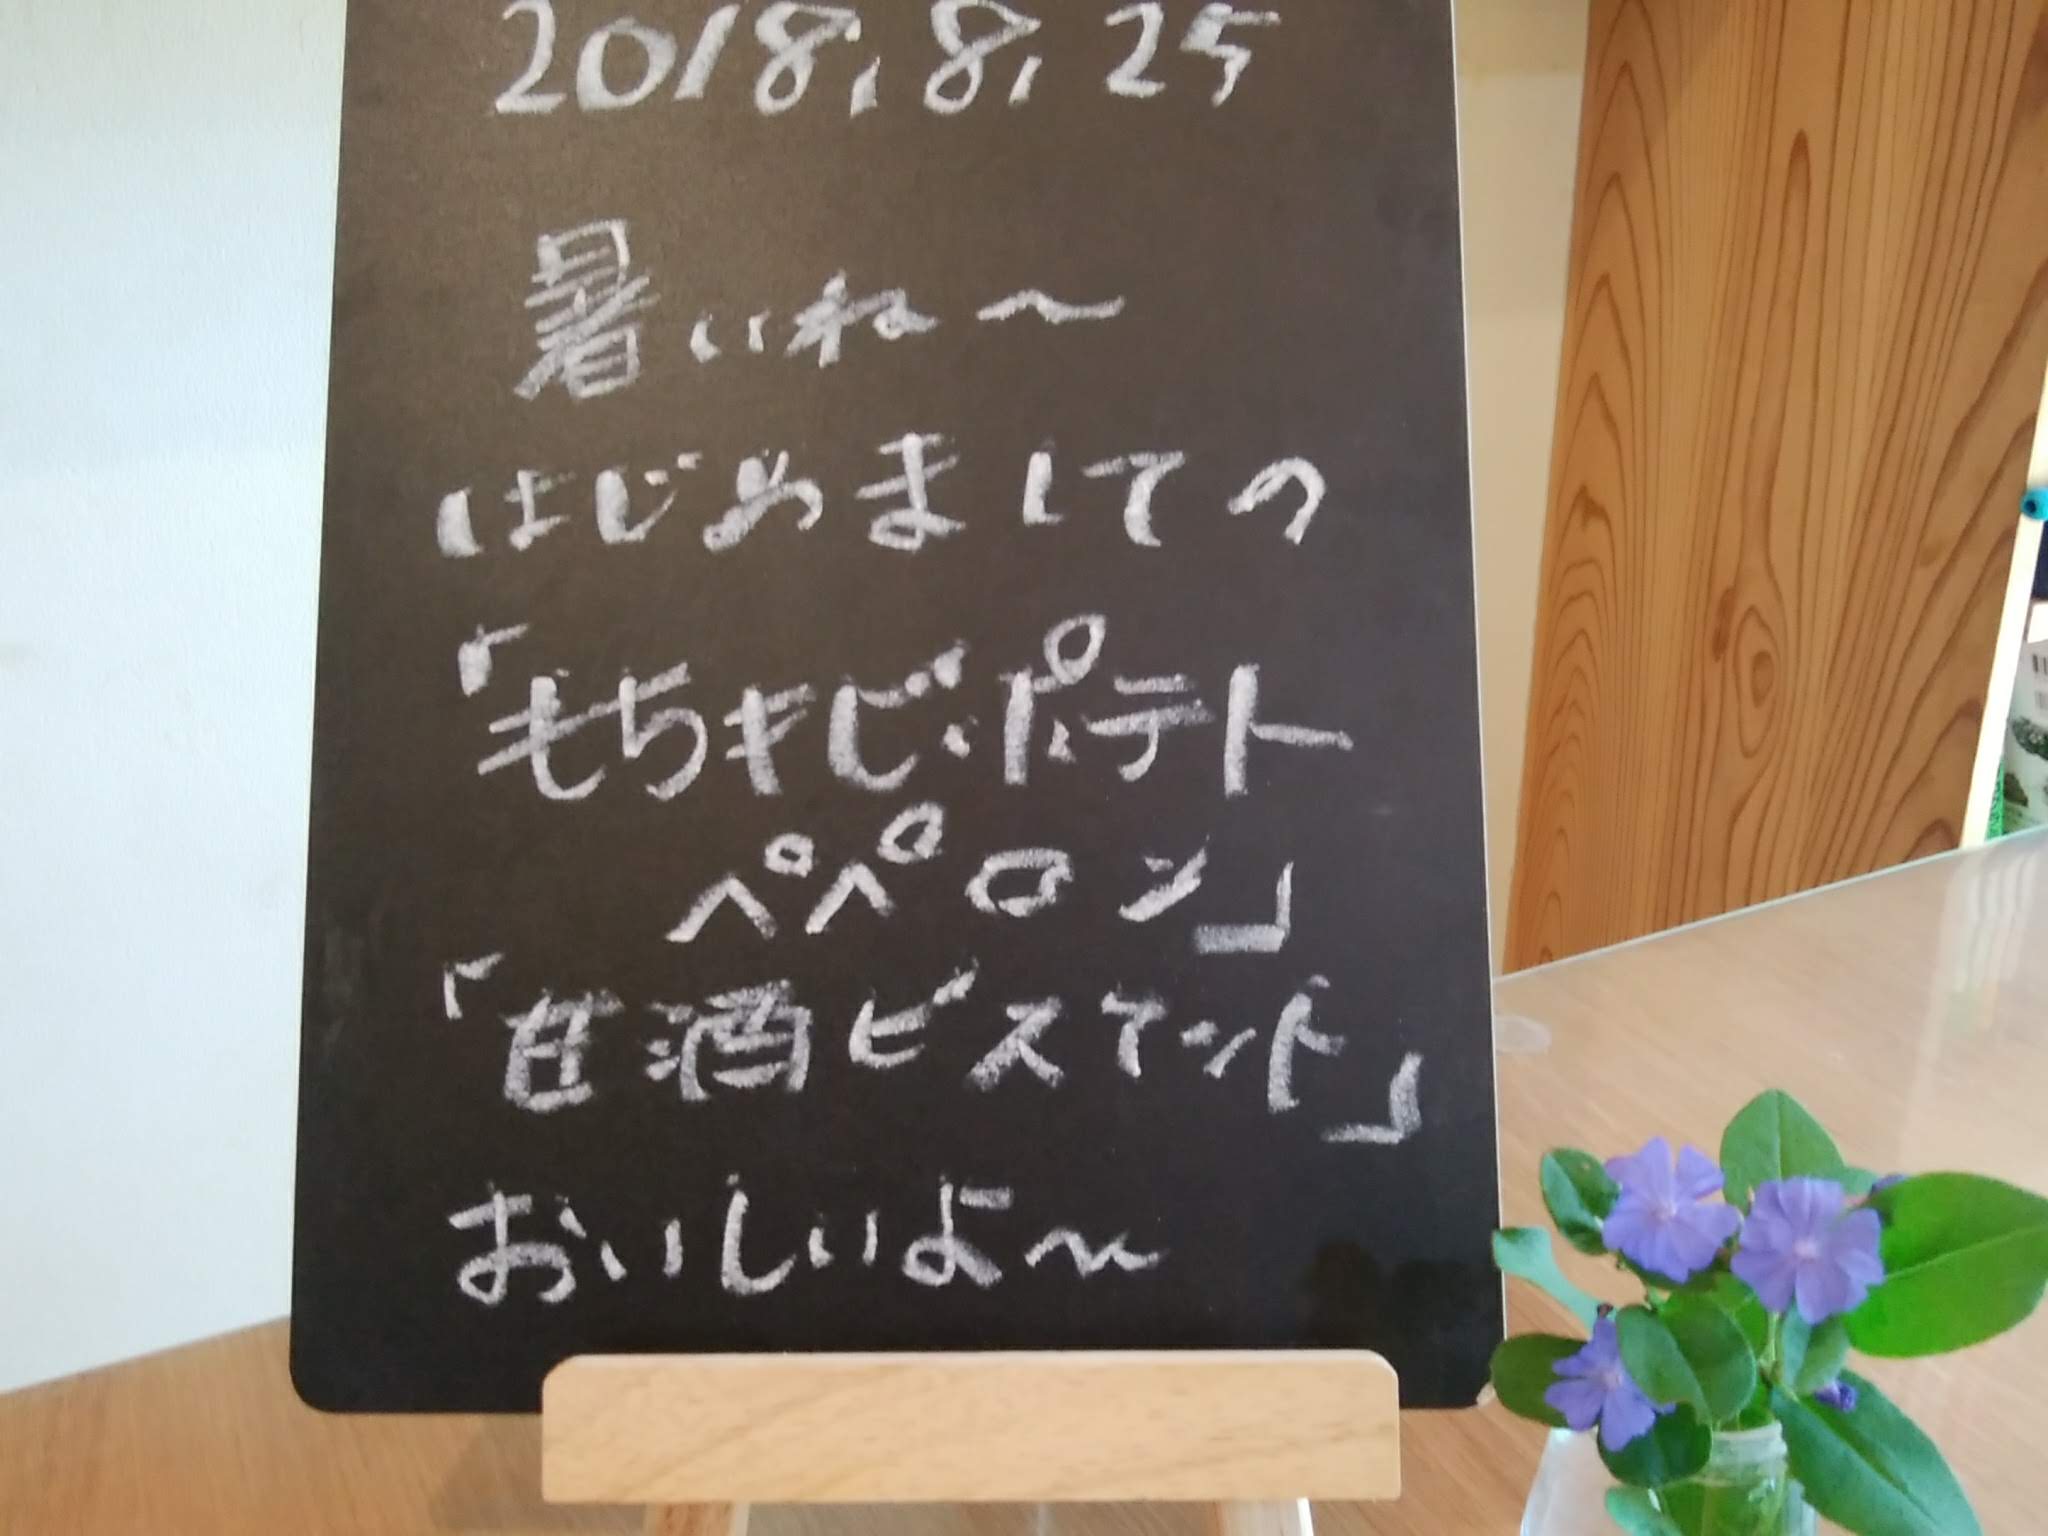 2018.8.25
暑いね〜
はじめましての
「もちキビ・ポテト
ペペロン」
「甘酒ビスケット」
おいしいよ〜